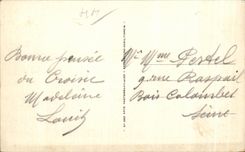 Bonne pensée
du Croisic
Madeleine
Louis
Mr Mme Pertel
9 rue Raspail
Bois Colombes
Seine